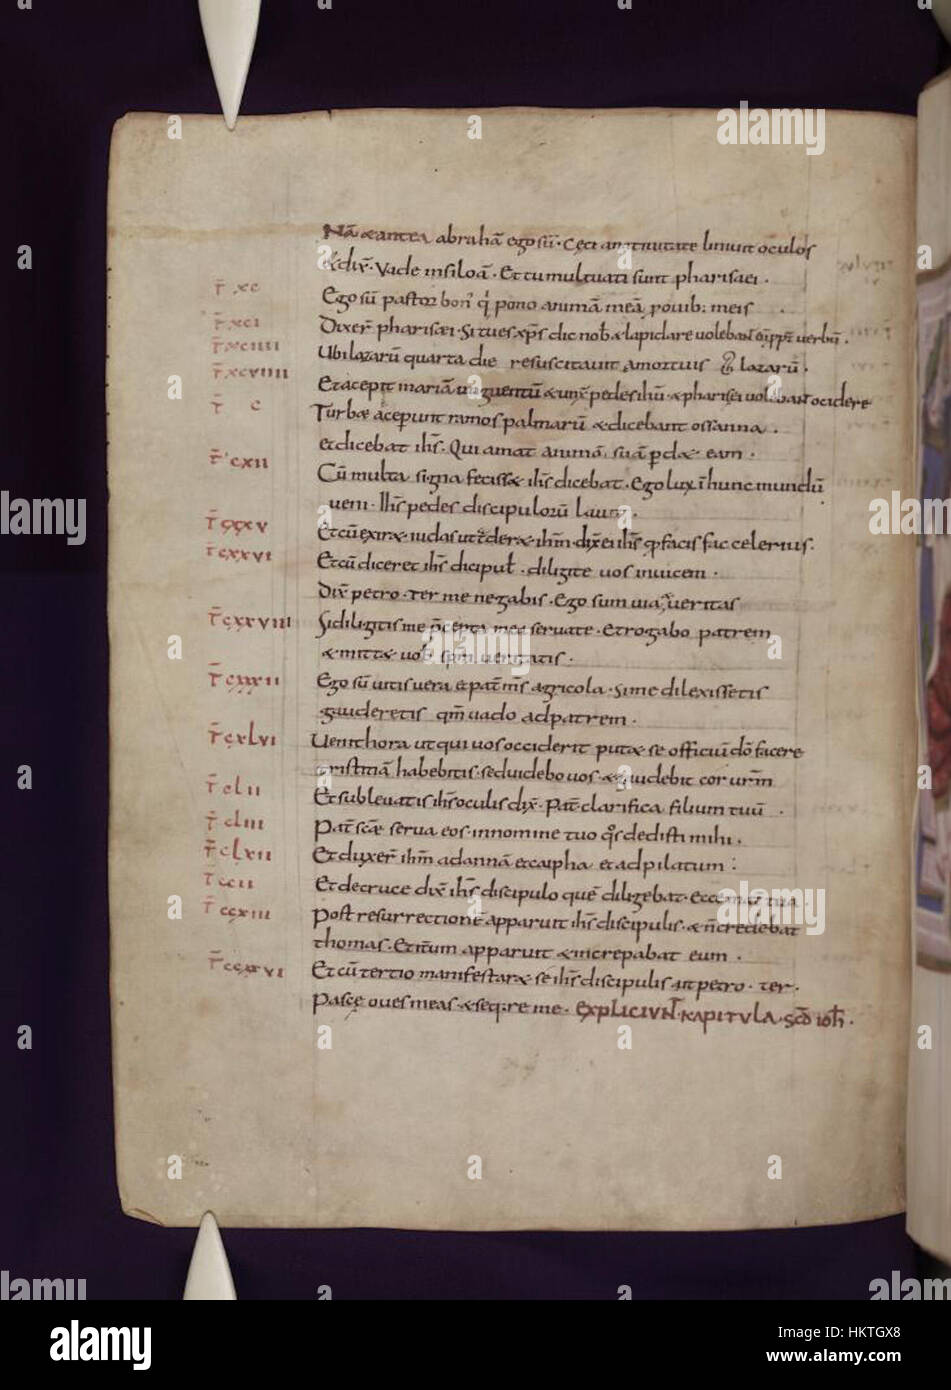 Nā & antea abrahā ego sū· Ceci a natiuitate liniuit oculos
& dix̄· Vade in siloā· Et tumultuati sunt pharisaei·
r̄ xc Ego sū pastor bon' q̇ pono animā meā, pouib: meis
r̄ xci Dixer̄ pharisæi· Si tu es xp̄s dic nob̄ & lapidare uolebant uerbū·
r̄ xciiii Ubi lazarū quarta die resuscitauit a mortuis lazarū·
r̄ xcviiii Et acepit mariā unguentū & unx̄ pedes ihū & pharisei uolebant occidere
r̄ c Turbæ aceperunt ramos palmarū & dicebant ossanna·
et dicebat ih̄s· Qui amat animā suā p̱d& eam·
r̄ cxii Cū multa signa feciss& ih̄s dicebat· Ego lux ī hunc mundū
ueni· Ih̄s pedes discipulorū lauit·
r̄ cxxv Et cū exir& iudas ut ih̄m· dix̄ ei ih̄s facis fac celerius·
r̄ cxxvi Et cū diceret ih̄s dicipul̄· diligite uos inuicem·
Dix̄ petro· ter me negabis· Ego sum uia & ueritas
r̄ cxxviii Si diligitis me p̄cepta mea seruate· Et rogabo patrem
& mitt& uob̄ sp̄m ueritatis·
r̄ cxxxii Ego sū uitis uera et pat̄ m̄s agricola· Si me dilexissetis
gauderetis qm̄ uado ad patrem·
r̄ cxlvi Uenit hora ut qui uos occiderit put& se officiū dō facere
tristitiā habebitis· sed uidebo uos & gaudebit cor ur̄m
r̄ clii Et subleuatis ih̄s oculis dix̄· Pat̄ clarifica filium tuū·
r̄ cliii Pat̄ sc̄æ serua eos in nomine tuo q̊s dedisti mihi·
r̄ clxii Et duxer̄ ih̄m ad annā et caipha et ad pilatum:
r̄ ccii Et de cruce dix̄ ih̄s discipulo quē diligebat· Ecce mat̄ tua·
r̄ ccxiii Post resurrectionē apparuit ih̄s discipulis· & n̄ credebat
thomas· Et it̄um apparuit & increpabat eum·
r̄ ccxxvi Et cū tertio manifestar& se ih̄s discipulis ait petro· ter·
Pasce oues meas & seq:re me· EXPLICIUNT KAPITULA· SCD̄ IOH̄·
a alamy
alamy stock photo
HKTGX8
www.alamy.com